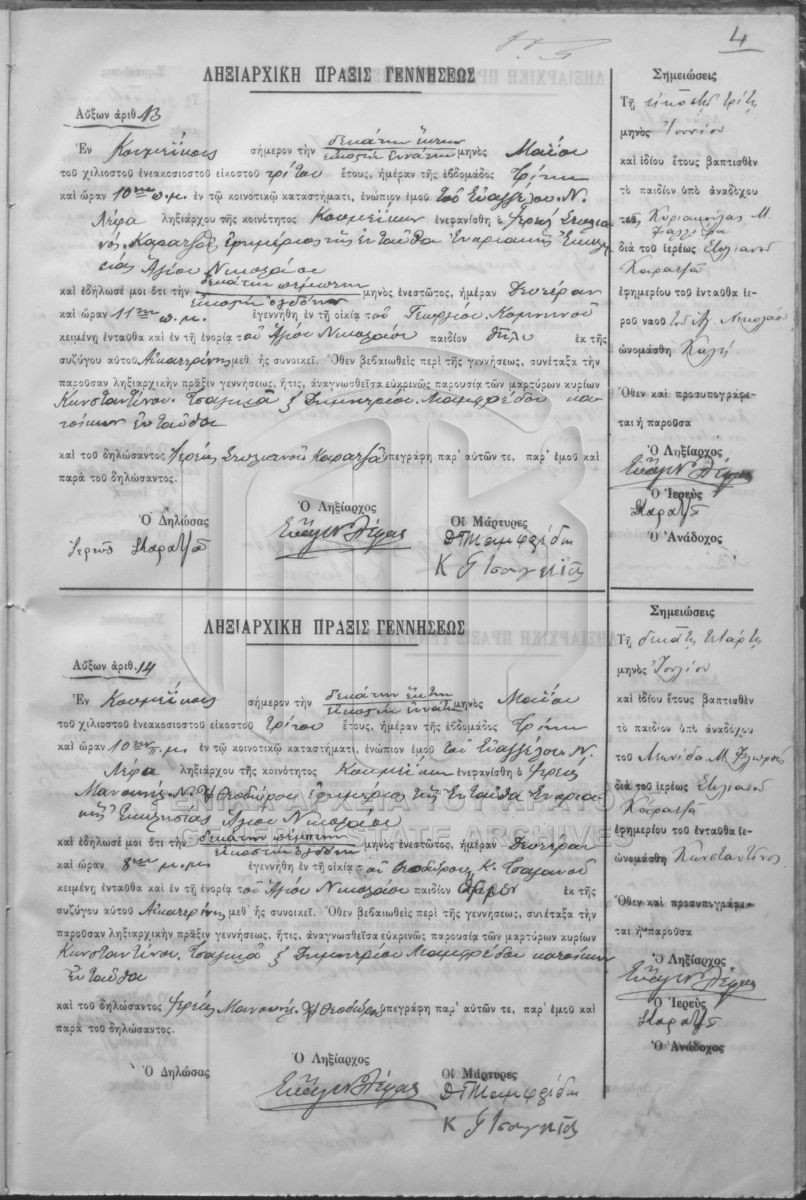 4
ΛΗΞΙΑΡΧΙΚΗ ΠΡΑΞΙΣ ΓΕΝΝΗΣΕΩΣ
Αὔξων ἀριθ. 13
Ἐν Κουμεΐκοις σήμερον τὴν δεκάτην ἕκτην
εἰκοστὴν ἐννάτην μηνὸς Μαΐου
τοῦ χιλιοστοῦ ἐνεακοσιοστοῦ εἰκοστοῦ τρίτου ἔτους, ἡμέραν τῆς ἑβδομάδος Τρίτην
καὶ ὥραν 10ην π.μ. ἐν τῷ κοινοτικῷ καταστήματι, ἐνώπιον ἐμοῦ τοῦ Εὐαγγέλου Ν.
Λέρα ληξιάρχου τῆς κοινότητος Κουμεΐκων ἐνεφανίσθη ὁ Ἱερεὺς Στυλια
νός Καρατζᾶς ἐφημέριος τῆς ἐνταῦθα Ἐνοριακῆς Ἐκκλη
σίας Ἁγίου Νικολάου
καὶ ἐδήλωσέ μοι ὅτι τὴν δεκάτην πέμπτην
εἰκοστὴν ὀγδόην μηνὸς ἐνεστῶτος, ἡμέραν Δευτέραν
καὶ ὥραν 11ην π.μ. ἐγεννήθη ἐν τῇ οἰκίᾳ τοῦ Γεωργίου Κομνηνοῦ
κειμένη ἐνταῦθα καὶ ἐν τῇ ἐνορίᾳ τοῦ Ἁγίου Νικολάου παιδίον θῆλυ ἐκ τῆς
συζύγου αὐτοῦ Αἰκατερίνης μεθ' ἧς συνοικεῖ. Ὅθεν βεβαιωθεὶς περὶ τῆς γεννήσεως, συνέταξα τὴν
παροῦσαν ληξιαρχικὴν πρᾶξιν γεννήσεως, ἥτις, ἀναγνωσθεῖσα εὐκρινῶς παρουσίᾳ τῶν μαρτύρων κυρίων
Κωνσταντίνου Τσαγκιᾶ & Δημητρίου Μαμφρέδου κα
τοίκων ἐνταῦθα
καὶ τοῦ δηλώσαντος Ἱερέως Στυλιανοῦ Καρατζᾶ ὑπεγράφη παρ' αὐτῶν τε, παρ' ἐμοῦ καὶ
παρὰ τοῦ δηλώσαντος.
Ὁ Δηλώσας
Ὁ Ληξίαρχος
Οἱ Μάρτυρες
Ἱερεὺς Σ Καρατζᾶς
Εὐάγ. Ν. Λέρας
Κ Γ Τσαγκιᾶς
Σημειώσεις
Τῇ εἰκοστῇ τρίτῃ
μηνὸς Ἰουνίου
καὶ ἰδίου ἔτους βαπτισθὲν
τὸ παιδίον ὑπὸ ἀναδόχου
Κυριακούλας Μ.
διὰ τοῦ ἱερέως Στυλιανοῦ
Καρατζᾶ
ἐφημερίου τοῦ ἐνταῦθα ἱε-
ροῦ ναοῦ τοῦ Ἁγ. Νικολάου
ὠνομάσθη Καλή
Ὅθεν καὶ προσυπογράφε-
ται ἡ παροῦσα
Ὁ Ληξίαρχος
Εὐάγ. Ν. Λέρας
Ὁ Ἱερεὺς
Σ Καρατζᾶς
Ὁ Ἀνάδοχος
ΛΗΞΙΑΡΧΙΚΗ ΠΡΑΞΙΣ ΓΕΝΝΗΣΕΩΣ
Αὔξων ἀριθ. 14
Ἐν Κουμεΐκοις σήμερον τὴν δεκάτην ἕκτην
εἰκοστὴν ἐννάτην μηνὸς Μαΐου
τοῦ χιλιοστοῦ ἐνεακοσιοστοῦ εἰκοστοῦ τρίτου ἔτους, ἡμέραν τῆς ἑβδομάδος Τρίτην
καὶ ὥραν 10ην π.μ. ἐν τῷ κοινοτικῷ καταστήματι, ἐνώπιον ἐμοῦ τοῦ Εὐαγγέλου Ν.
Λέρα ληξιάρχου τῆς κοινότητος Κουμεΐκων ἐνεφανίσθη ὁ Ἱερεὺς
Μανουὴλ Θεοδώρου ἐφημέριος τῆς ἐνταῦθα Ἐνορια
κῆς Ἐκκλησίας Ἁγίου Νικολάου
καὶ ἐδήλωσέ μοι ὅτι τὴν δεκάτην πέμπτην
εἰκοστὴν ὀγδόην μηνὸς ἐνεστῶτος, ἡμέραν Δευτέραν
καὶ ὥραν 8ην μ.μ. ἐγεννήθη ἐν τῇ οἰκίᾳ τοῦ Θεοδώρου Κ. Τσαγανοῦ
κειμένη ἐνταῦθα καὶ ἐν τῇ ἐνορίᾳ τοῦ Ἁγίου Νικολάου παιδίον ἄρρεν ἐκ τῆς
συζύγου αὐτοῦ Αἰκατερίνης μεθ' ἧς συνοικεῖ. Ὅθεν βεβαιωθεὶς περὶ τῆς γεννήσεως, συνέταξα τὴν
παροῦσαν ληξιαρχικὴν πρᾶξιν γεννήσεως, ἥτις, ἀναγνωσθεῖσα εὐκρινῶς παρουσίᾳ τῶν μαρτύρων κυρίων
Κωνσταντίνου Τσαγκιᾶ & Δημητρίου Μαμφρέδου κατοίκων
ἐνταῦθα
καὶ τοῦ δηλώσαντος Ἱερέως Μανουὴλ Θεοδώρου ὑπεγράφη παρ' αὐτῶν τε, παρ' ἐμοῦ καὶ
παρὰ τοῦ δηλώσαντος.
Ὁ Δηλώσας
Ὁ Ληξίαρχος
Οἱ Μάρτυρες
Εὐάγ. Ν. Λέρας
Κ Γ Τσαγκιᾶς
Σημειώσεις
Τῇ δεκάτῃ τετάρτῃ
μηνὸς Ἰουλίου
καὶ ἰδίου ἔτους βαπτισθὲν
τὸ παιδίον ὑπὸ ἀναδόχου
τοῦ Λεωνίδα Μ.
διὰ τοῦ ἱερέως Στυλιανοῦ
Καρατζᾶ
ἐφημερίου τοῦ ἐνταῦθα ἱε-
ὠνομάσθη Κωνσταντῖνος
Ὅθεν καὶ προσυπογράφε-
ται ἡ παροῦσα
Ὁ Ληξίαρχος
Εὐάγ. Ν. Λέρας
Ὁ Ἱερεὺς
Σ Καρατζᾶς
Ὁ Ἀνάδοχος
ΓΕΝΙΚΑ ΑΡΧΕΙΑ ΤΟΥ ΚΡΑΤΟΥΣ
GREEK STATE ARCHIVES